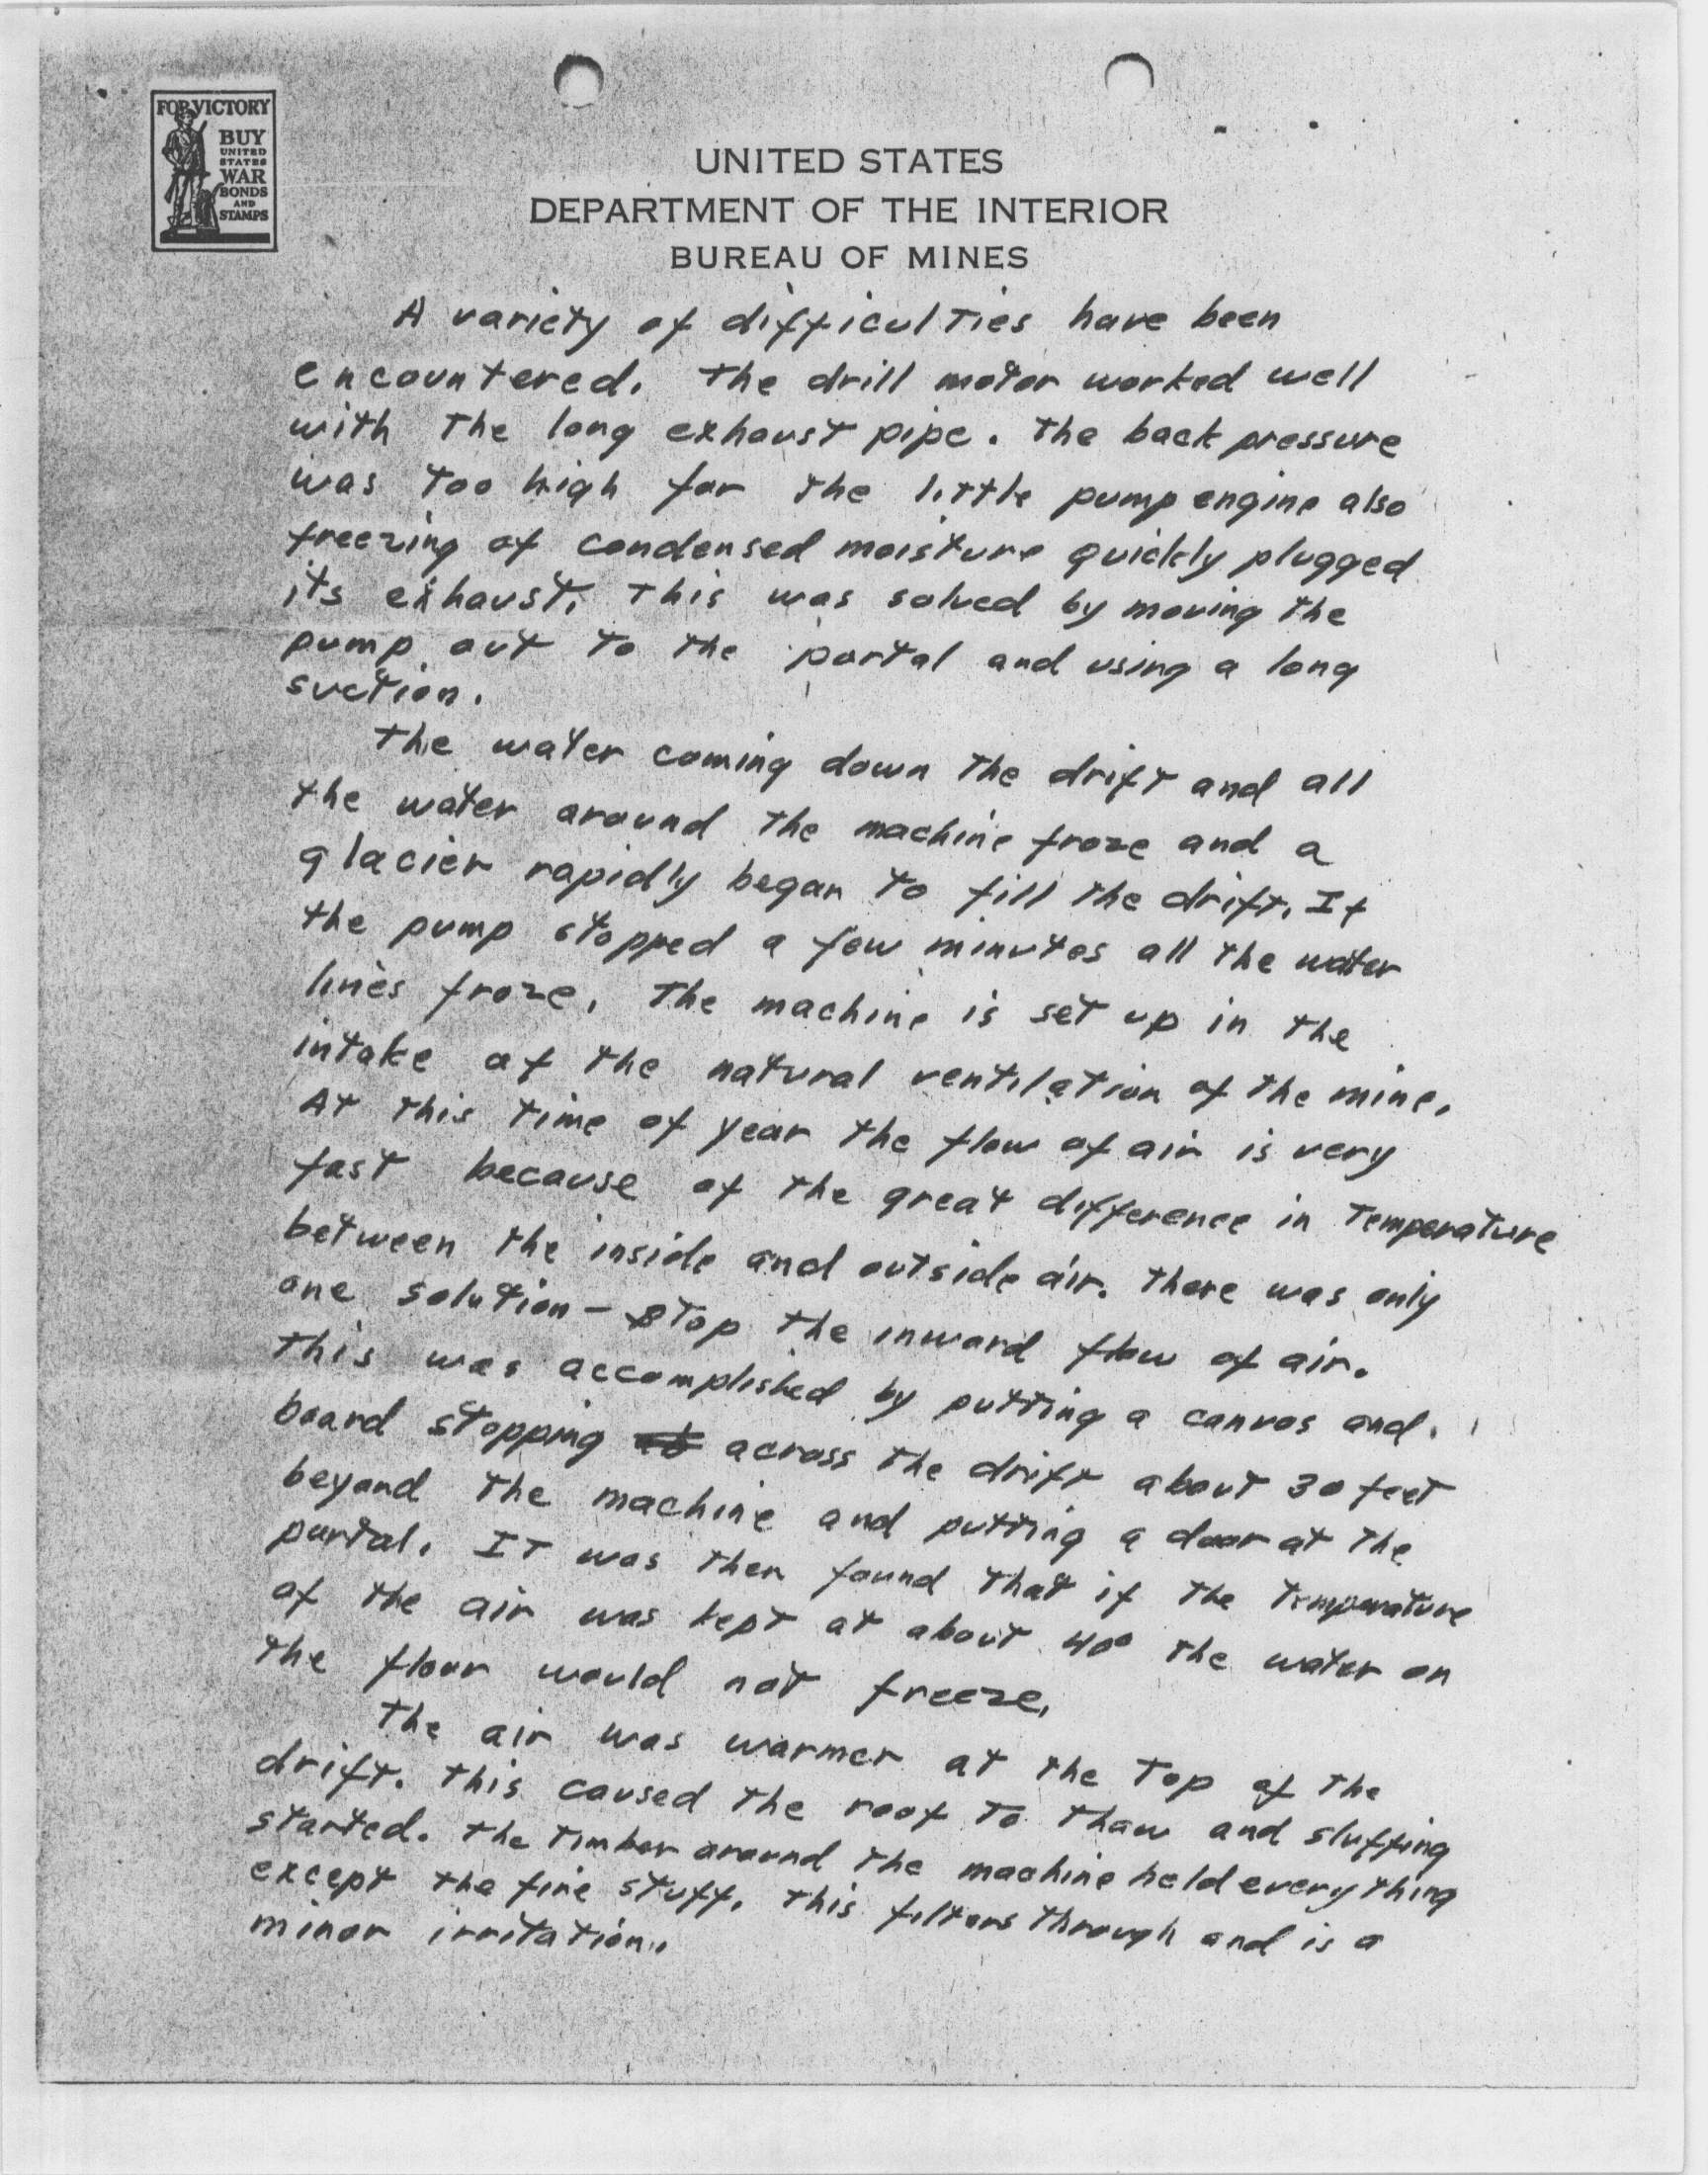 FOR VICTORY
BUY
UNITED
STATES
WAR
BONDS
AND
STAMPS
UNITED STATES
DEPARTMENT OF THE INTERIOR
BUREAU OF MINES
A variety of difficulties have been
encountered. The drill motor worked well
with the long exhaust pipe. The back pressure
was too high for the little pump engine also
freezing of condensed moisture quickly plugged
its exhaust. This was solved by moving the
pump out to the portal and using a long
suction.
The water coming down the drift and all
the water around the machine froze and a
glacier rapidly began to fill the drift. If
the pump stopped a few minutes all the water
lines froze. The machine is set up in the
intake of the natural ventilation of the mine.
At this time of year the flow of air is very
fast because of the great difference in temperature
between the inside and outside air. There was only
one solution - stop the inward flow of air.
This was accomplished by putting a canvas and
board stopping across the drift about 30 feet
beyond the machine and putting a door at the
portal. It was then found that if the temperature
of the air was kept at about 40° the water on
the floor would not freeze.
The air was warmer at the top of the
drift. This caused the roof to thaw and sluffing
started. The timber around the machine held everything
except the fine stuff. This filters through and is a
minor irritation.